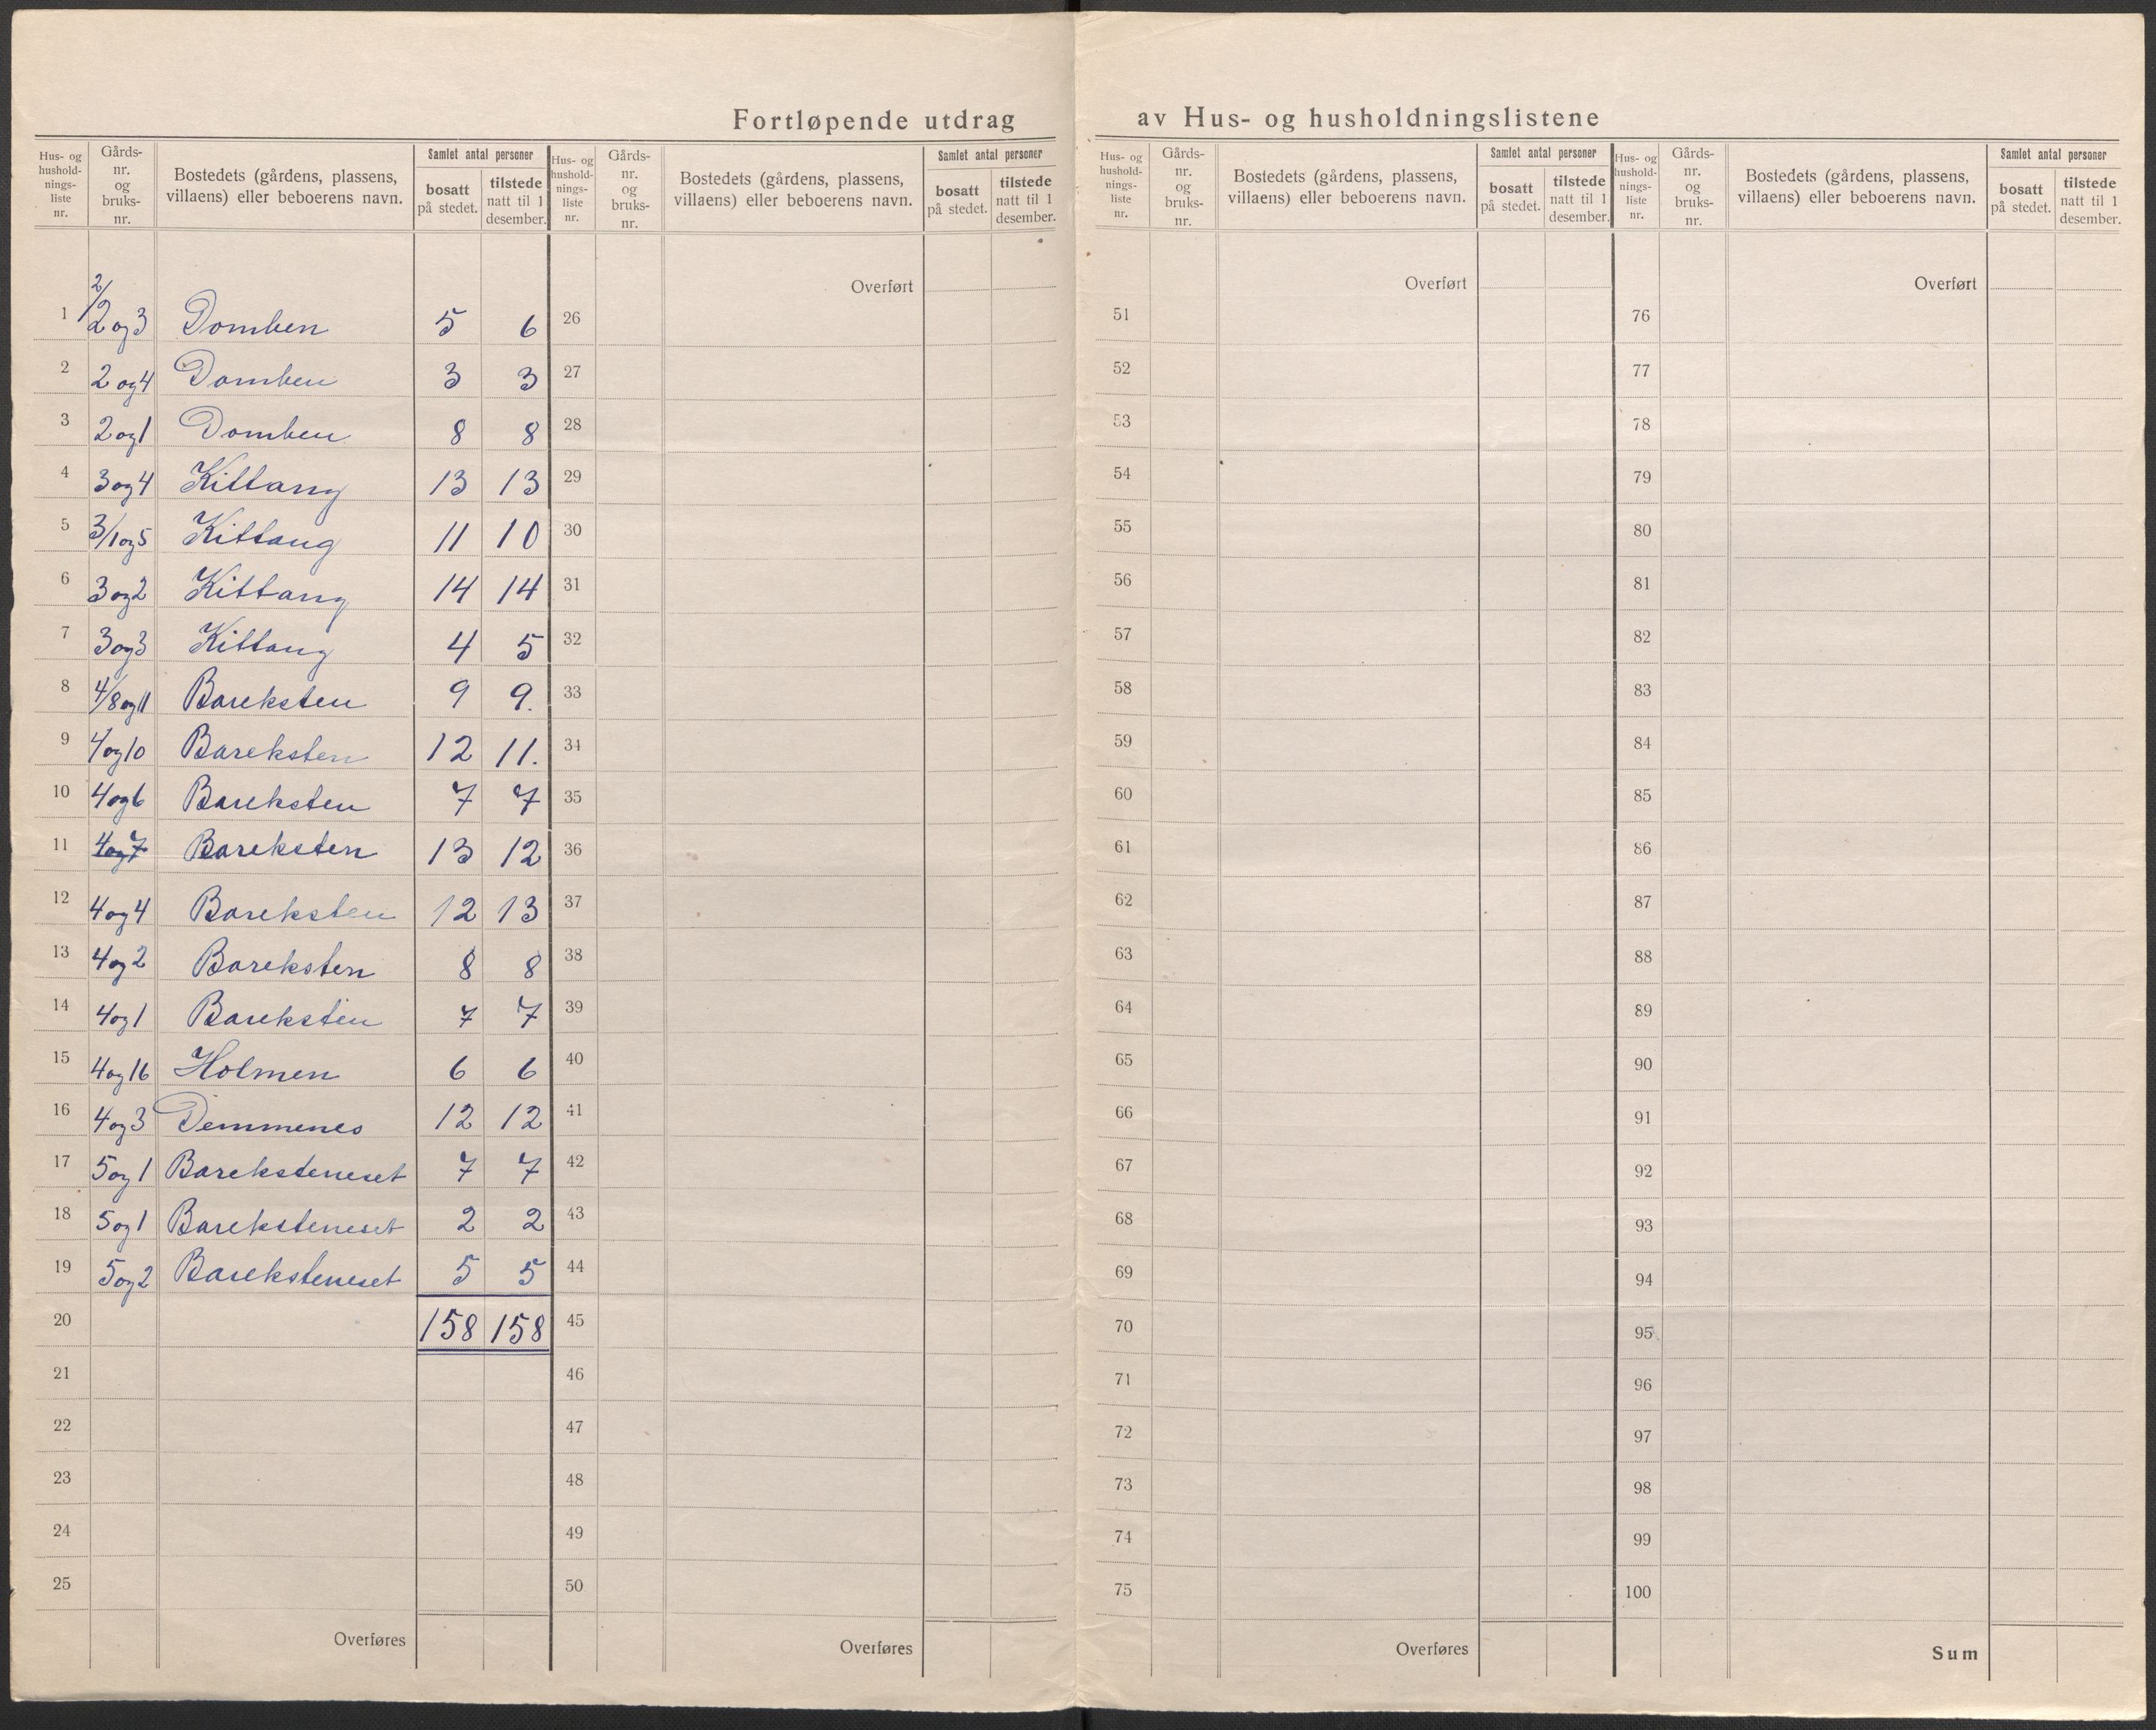 Fortløpende utdrag av Hus- og husholdningslistene
Hus- og hushold-nings-liste nr. | Gårds-nr. og bruks-nr. | Bostedets (gårdens, plassens, villaens) eller beboerens navn. | Samlet antal personer | bosatt på stedet. | tilstede natt til 1 desember.
Hus- og hushold-nings-liste nr. | Gårds-nr. og bruks-nr. | Bostedets (gårdens, plassens, villaens) eller beboerens navn. | Samlet antal personer | bosatt på stedet. | tilstede natt til 1 desember.
Hus- og hushold-nings-liste nr. | Gårds-nr. og bruks-nr. | Bostedets (gårdens, plassens, villaens) eller beboerens navn. | Samlet antal personer | bosatt på stedet. | tilstede natt til 1 desember.
Hus- og hushold-nings-liste nr. | Gårds-nr. og bruks-nr. | Bostedets (gårdens, plassens, villaens) eller beboerens navn. | Samlet antal personer | bosatt på stedet. | tilstede natt til 1 desember.
1 2/2 og 3 Domben 5 6
2 2 og 4 Domben 3 3
3 2 og 1 Domben 8 8
4 3 og 4 Kittang 13 13
5 3/1 og 5 Kittang 11 10
6 3 og 2 Kittang 14 14
7 3 og 3 Kittang 4 5
8 4/8 og 11 Bareksten 9 9.
9 4 og 10 Bareksten 12 11.
10 4 og 6 Bareksten 7 7
11 4 og 7 Bareksten 13 12
12 4 og 4 Bareksten 12 13
13 4 og 2 Bareksten 8 8
14 4 og 1 Bareksten 7 7
15 4 og 16 Holmen 6 6
16 4 og 3 Demmenes 12 12
17 5 og 1 Bareksteneset 7 7
18 5 og 1 Bareksteneset 2 2
19 5 og 2 Bareksteneset 5 5
20 158 158
21
22
23
24
25
Overføres
Overført
26
27
28
29
30
31
32
33
34
35
36
37
38
39
40
41
42
43
44
45
46
47
48
49
50
Overføres
Overført
51
52
53
54
55
56
57
58
59
60
61
62
63
64
65
66
67
68
69
70
71
72
73
74
75
Overføres
Overført
76
77
78
79
80
81
82
83
84
85
86
87
88
89
90
91
92
93
94
95
96
97
98
99
100
Sum